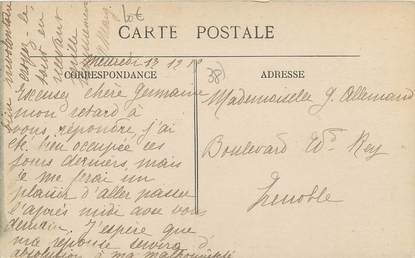 10€
CARTE POSTALE
38
CORRESPONDANCE
ADRESSE
Mercredi 13
Excusez chère Germaine
mon retard à
vous répondre, j'ai
été bien occupée ces
jours derniers, mais
je me ferai un
plaisir d'aller passer
l'après midi avec vous
demain. J'espère que
ma réponse servira d'
absolution à ma malhonnêteté
bien
croyez-le,
tout en
Mademoiselle G. Allemand
Boulevard Ed. Rey
Grenoble